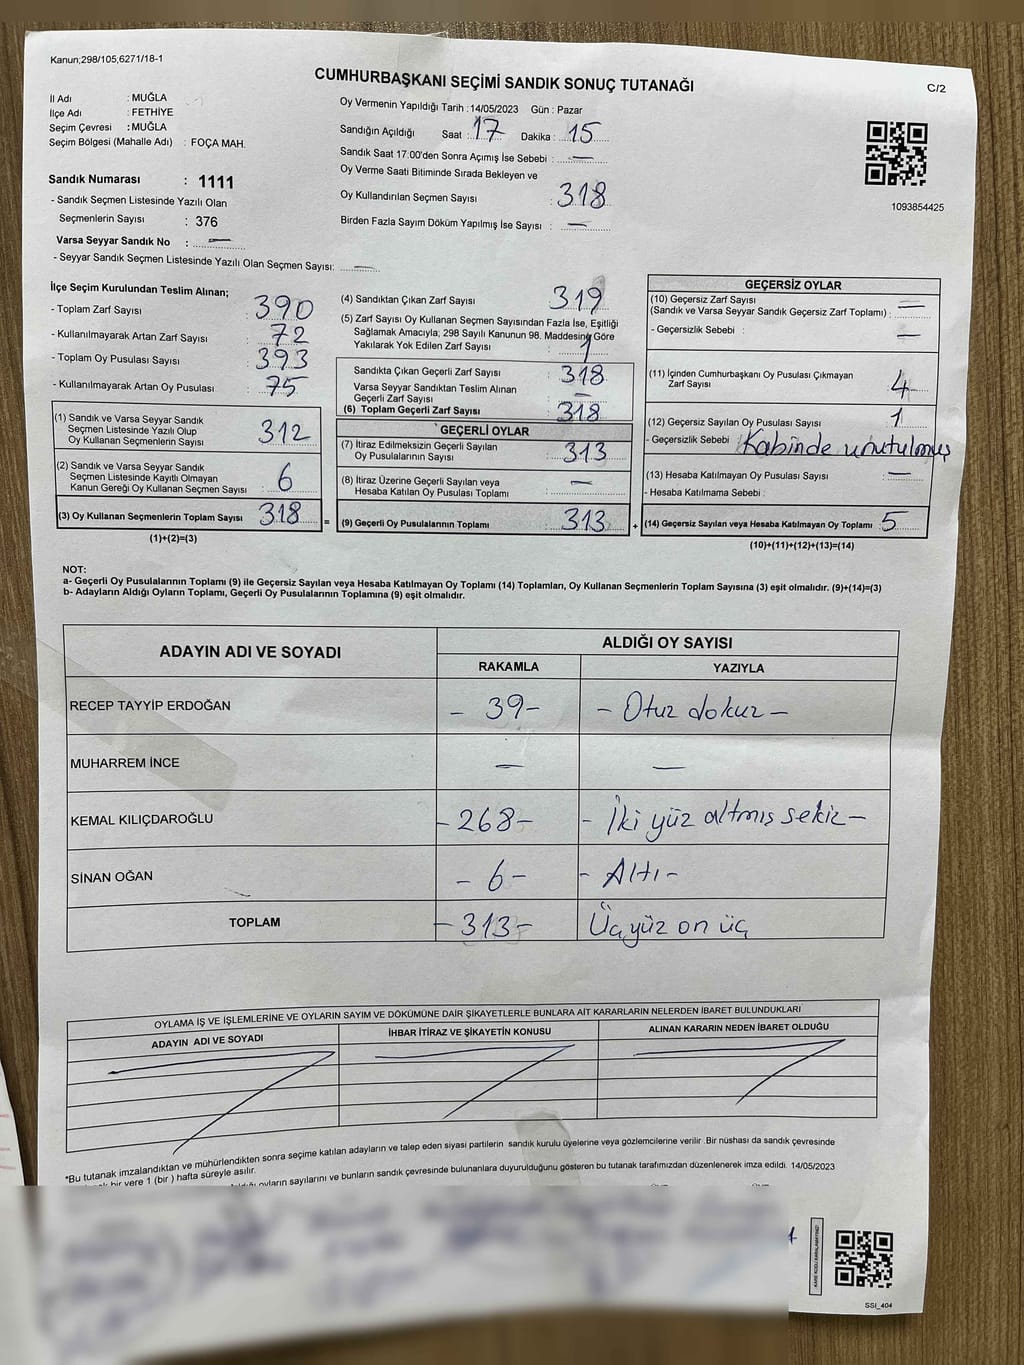 Kanun;298/105,6271/18-1
CUMHURBAŞKANI SEÇİMİ SANDIK SONUÇ TUTANAĞI
C/2
İl Adı : MUĞLA
İlçe Adı : FETHİYE
Seçim Çevresi : MUĞLA
Seçim Bölgesi (Mahalle Adı) : FOÇA MAH.
Sandık Numarası : 1111
- Sandık Seçmen Listesinde Yazılı Olan
Seçmenlerin Sayısı : 376
Varsa Seyyar Sandık No : —
- Seyyar Sandık Seçmen Listesinde Yazılı Olan Seçmen Sayısı: —
Oy Vermenin Yapıldığı Tarih : 14/05/2023 Gün : Pazar
Sandığın Açıldığı Saat : 17 Dakika : 15
Sandık Saat 17.00'den Sonra Açımış İse Sebebi : —
Oy Verme Saati Bitiminde Sırada Bekleyen ve
Oy Kullandırılan Seçmen Sayısı : 318
Birden Fazla Sayım Döküm Yapılmış İse Sayısı : —
1093854425
İlçe Seçim Kurulundan Teslim Alınan;
- Toplam Zarf Sayısı : 390
- Kullanılmayarak Artan Zarf Sayısı : 72
- Toplam Oy Pusulası Sayısı : 393
- Kullanılmayarak Artan Oy Pusulası : 75
(1) Sandık ve Varsa Seyyar Sandık
Seçmen Listesinde Yazılı Olup
Oy Kullanan Seçmenlerin Sayısı : 312
(2) Sandık ve Varsa Seyyar Sandık
Seçmen Listesinde Kayıtlı Olmayan
Kanun Gereği Oy Kullanan Seçmen Sayısı : 6
(3) Oy Kullanan Seçmenlerin Toplam Sayısı : 318 =
(1)+(2)=(3)
(4) Sandıktan Çıkan Zarf Sayısı : 319
(5) Zarf Sayısı Oy Kullanan Seçmen Sayısından Fazla İse, Eşitliği
Sağlamak Amacıyla; 298 Sayılı Kanunun 98. Maddesine Göre
Yakılarak Yok Edilen Zarf Sayısı : 1
Sandıkta Çıkan Geçerli Zarf Sayısı : 318
Varsa Seyyar Sandıktan Teslim Alınan
Geçerli Zarf Sayısı : —
(6) Toplam Geçerli Zarf Sayısı : 318
GEÇERLİ OYLAR
(7) İtiraz Edilmeksizin Geçerli Sayılan
Oy Pusulalarının Sayısı : 313
(8) İtiraz Üzerine Geçerli Sayılan veya
Hesaba Katılan Oy Pusulası Toplamı : —
(9) Geçerli Oy Pusulalarının Toplamı : 313 +
GEÇERSİZ OYLAR
(10) Geçersiz Zarf Sayısı
(Sandık ve Varsa Seyyar Sandık Geçersiz Zarf Toplamı) : —
- Geçersizlik Sebebi : —
(11) İçinden Cumhurbaşkanı Oy Pusulası Çıkmayan
Zarf Sayısı : 4
(12) Geçersiz Sayılan Oy Pusulası Sayısı : 1
- Geçersizlik Sebebi : Kabinde unutulmuş
(13) Hesaba Katılmayan Oy Pusulası Sayısı : —
- Hesaba Katılmama Sebebi :
(14) Geçersiz Sayılan veya Hesaba Katılmayan Oy Toplamı : 5
(10)+(11)+(12)+(13)=(14)
NOT:
a- Geçerli Oy Pusulalarının Toplamı (9) ile Geçersiz Sayılan veya Hesaba Katılmayan Oy Toplamı (14) Toplamları, Oy Kullanan Seçmenlerin Toplam Sayısına (3) eşit olmalıdır. (9)+(14)=(3)
b- Adayların Aldığı Oyların Toplamı, Geçerli Oy Pusulalarının Toplamına (9) eşit olmalıdır.
ADAYIN ADI VE SOYADI ALDIĞI OY SAYISI
RAKAMLA YAZIYLA
RECEP TAYYİP ERDOĞAN - 39 - - Otuz dokuz -
MUHARREM İNCE — —
KEMAL KILIÇDAROĞLU - 268 - - İki yüz altmış sekiz -
SİNAN OĞAN - 6 - - Altı -
TOPLAM - 313 - Üçyüz on üç
OYLAMA İŞ VE İŞLEMLERİNE VE OYLARIN SAYIM VE DÖKÜMÜNE DAİR ŞİKAYETLERLE BUNLARA AİT KARARLARIN NELERDEN İBARET BULUNDUKLARI
ADAYIN ADI VE SOYADI İHBAR İTİRAZ VE ŞİKAYETİN KONUSU ALINAN KARARIN NEDEN İBARET OLDUĞU
*Bu tutanak imzalandıktan ve mühürlendikten sonra seçime katılan adayların ve talep eden siyasi partilerin sandık kurulu üyelerine veya gözlemcilerine verilir .Bir nüshası da sandık çevresinde
bir yere 1 (bir ) hafta süreyle asılır.
oyların sayılarını ve bunların sandık çevresinde bulunanlara duyurulduğunu gösteren bu tutanak tarafımızdan düzenlenerek imza edildi. 14/05/2023
KARE KODU KARALAMAYINIZ!
SSI_404